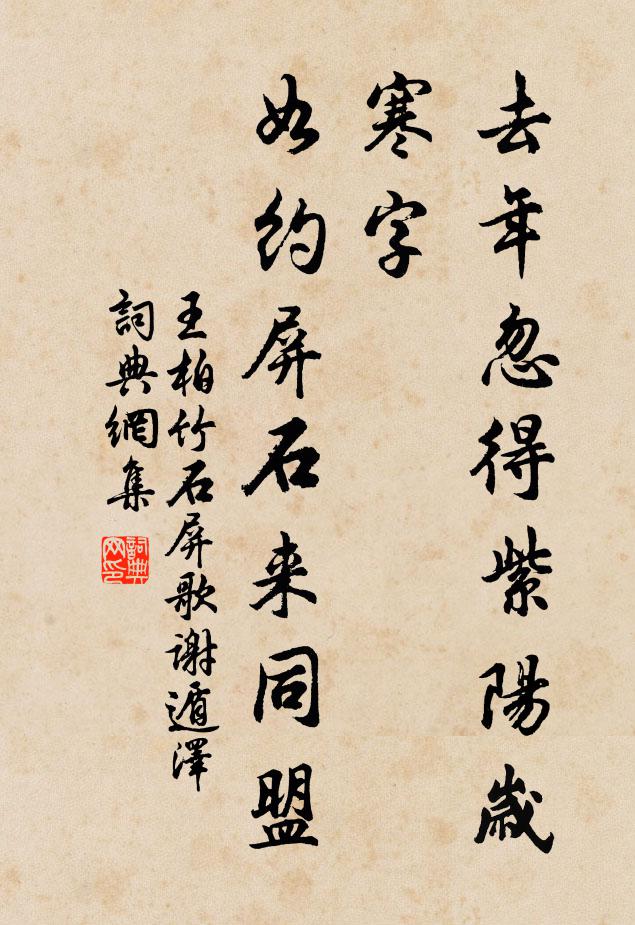 去年忽得紫陽歲
寒字
如约屏石来同盟
王柏竹石屏歌謝遁澤
詞典網集
詞典網印